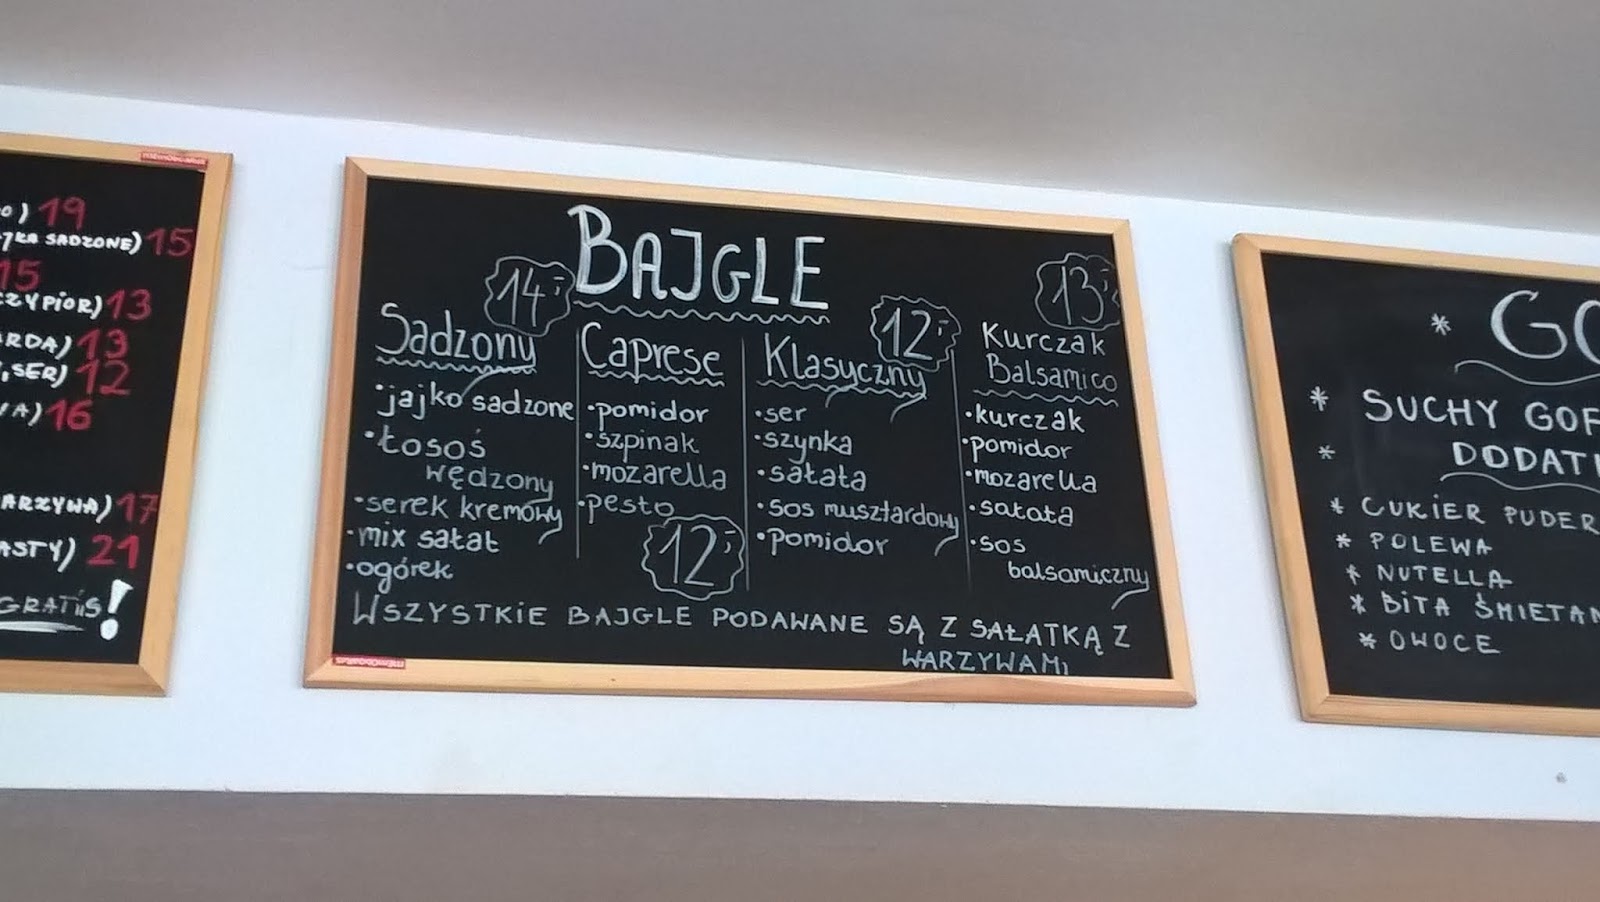 19
SADZONE) 15
15
13
13
, SER) 12
16
17
21
GRATIS!
BAJGLE
14,-
Sadzony
• jajko sadzone
• łosoś
wędzony
• serek kremowy
• mix sałat
• ogórek
Caprese
• pomidor
• szpinak
• mozarella
• pesto
12,-
12,-
Klasyczny
• ser
• szynka
• sałata
• sos musztardowy
• pomidor
13,-
Kurczak
Balsamico
• kurczak
• pomidor
• mozarella
• sałata
• sos
balsamiczny
WSZYSTKIE BAJGLE PODAWANE SĄ Z SAŁATKĄ Z
WARZYWAMI
* GO
* SUCHY GOF
* DODATK
* CUKIER PUDER
* POLEWA
* NUTELLA
* BITA ŚMIETAN
* OWOCE